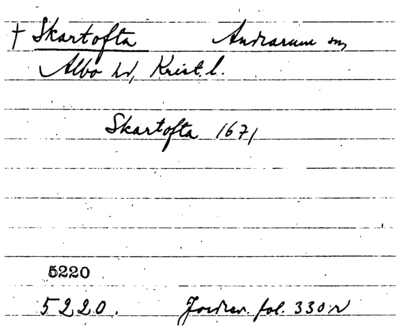 † Skartofta Andrarum sn,
Albo hd, Krist. l.
Skartofta 1671
5220
5220. Jordrev. fol. 330 v